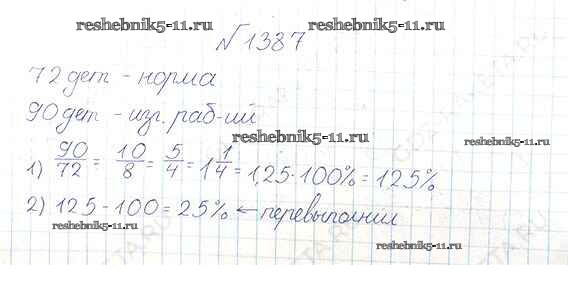 reshebnik5-11.ru
reshebnik5-11.ru
№1387
72 дет - норма
90 дет - изг. раб-ий
reshebnik5-11.ru
1) 90/72 = 10/8 = 5/4 = 1 1/4 = 1,25·100% = 125%
2) 125 - 100 = 25% ← перевыполнил
reshebnik5-11.ru
reshebnik5-11.ru